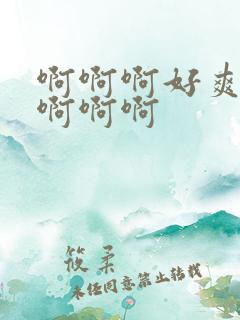 啊啊啊好爽
啊啊啊
筱柔
未经同意禁止转载